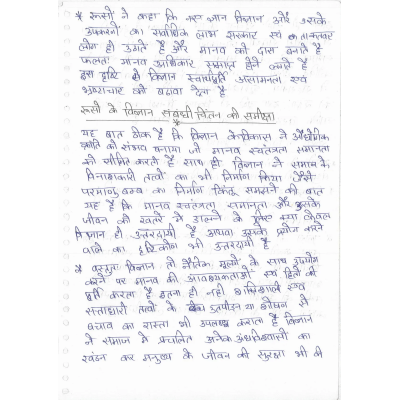 * रूसो ने कहा कि नव ज्ञान विज्ञान और उसके
उपकरणों का सर्वाधिक लाभ सरकार एवं ताकतवर
लोग ही उठाते है और मानव को दास बनाते है
फलतः मानव अधिकार समाप्त होने लगते है
इस दृष्टि से विज्ञान स्वार्थवृति असमानता एवं
भ्रष्टाचार को बढावा देता है
रूसो के विज्ञान संबंधी चिंतन की समीक्षा
यह बात ठीक है कि विज्ञान के विकास ने औद्योगिक
क्रांति को संभव बनाया जो मानव स्वतंत्रता समानता
को सीमित करते है साथ ही विज्ञान ने समाज में
विनाशकारी तत्वों का भी निर्माण किया जैसे
परमाणु बम्ब का निर्माण किंतु समझने की बात
यह है कि मानव स्वतंत्रता समानता और उसके
जीवन को खतरे में डालने के लिए क्या केवल
विज्ञान ही उत्तरदायी है अथवा उसका प्रयोग करने
वाले का दृष्टिकोण भी उत्तरदायी है
* वस्तुतः विज्ञान तो नैतिक मूल्यों के साथ उपयोग
करने पर मानव की आवश्यकताओं एवं हितों की
पूर्ति करता है इतना ही नहीं शक्तिशाली एवं
सत्ताधारी तत्वों के उत्पीडन या शोषण से
बचाव का रास्ता भी उपलब्ध कराता है विज्ञान
ने समाज में प्रचलित अनेक अंधविश्वासों का
खंडन कर मनुष्य के जीवन की सुरक्षा भी की